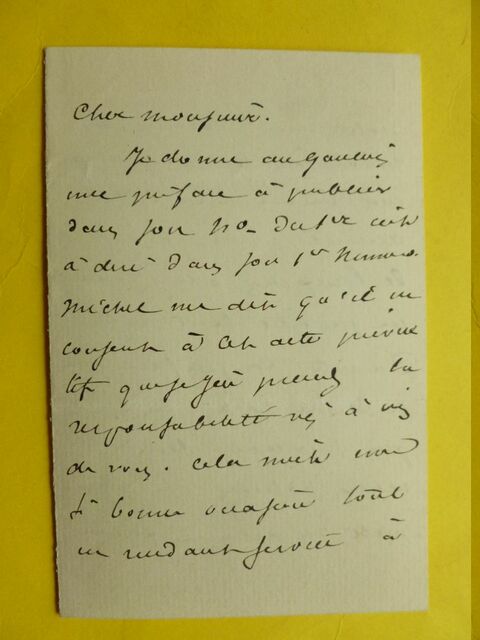 Cher monsieur.
Je donne au Gaulois
une préface à publier
dans son No du 1er c'est
à dire dans son 1er numero.
Michel me dit qu'il ne
consent à cet acte
que si j'en prends la
responsabilité vis à vis
de vous. Cela
bonne occasion tout
en rendant service à